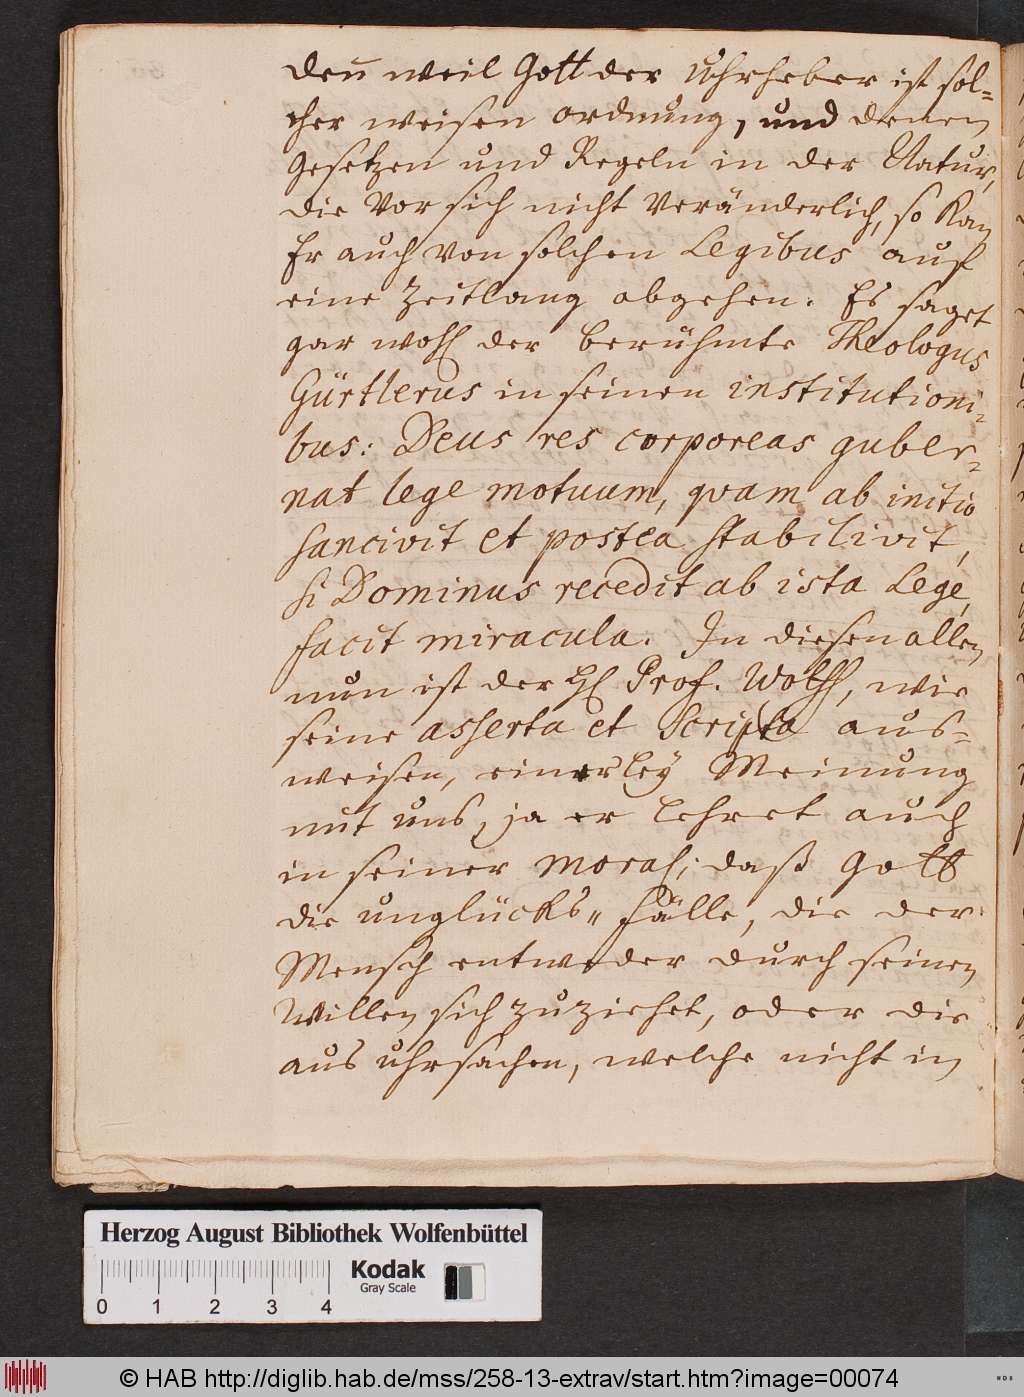 den weil Gott der Uhrheber ist sol-
cher weisen ordnung, und denen
Gesetzen und Regeln in der Natur,
die Vor sich nicht Veränderlich, so Kan
Er auch von solchen Legibus auf
eine Zeitlang abgehen. Es saget
gar wohl der berühmte Theologus
Gürtlerus in seinen institutioni-
bus: Deus res corporeas guber-
nat lege motuum, qvam ab initio
sancivit et postea stabilivit,
si Dominus recedit ab ista Lege,
facit miracula. In diesen allen
nun ist der H. Prof. Wolff, wie
seine asserta et Scripta aus-
weisen, einerley Meinung
mit uns, ja er lehret auch
in seiner Moral; daß Gott
die unglücks-fälle, die der
Mensch entweder durch seinen
Willen sich zuziehet, oder die
aus uhrsachen, welche nicht in
Herzog August Bibliothek Wolfenbüttel
Kodak
Gray Scale
0 1 2 3 4
© HAB http://diglib.hab.de/mss/258-13-extrav/start.htm?image=00074